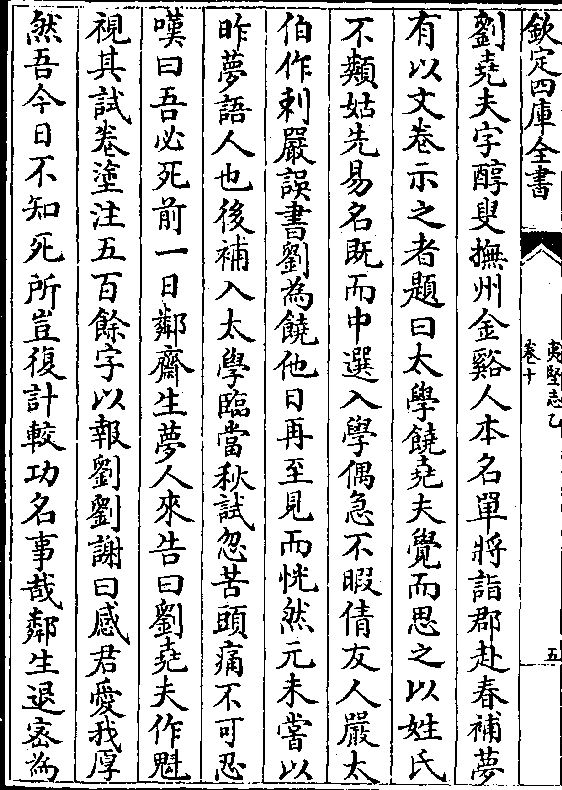 欽定四庫全書
夷堅志乙
卷十
五
劉堯夫字醇叟撫州金谿人本名單將詣郡赴春補夢
有以文卷示之者題曰太學饒堯夫覺而思之以姓氏
不類姑先易名既而中選入學偶急不暇倩友人嚴太
伯作刺嚴誤書劉為饒他日再至見而恍然元未嘗以
昨夢語人也後補入太學臨當秋試忽苦頭痛不可忍
嘆曰吾必死前一日鄰齋生夢人來告曰劉堯夫作魁
視其試卷塗注五百餘字以報劉劉謝曰感君愛我厚
然吾今日不知死所豈復計較功名事哉鄰生退密為